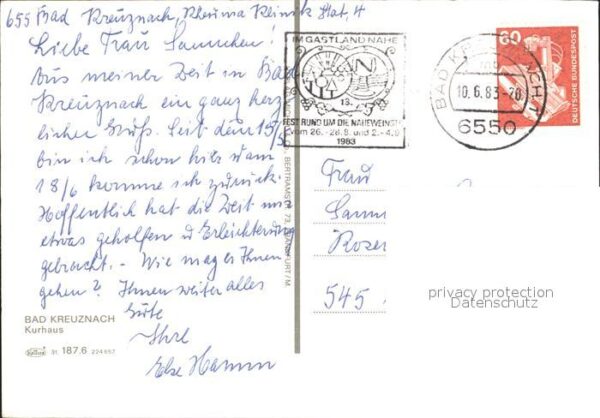 655 Bad Kreuznach, Rheuma Klinik Stat. 4
Liebe Frau
Aus meiner Zeit in Bad
Kreuznach ein ganz herz
licher Gruß. Seit dem 15/5
bin ich schon hier am
18/6 komme ich zurück.
Hoffentlich hat die Zeit mir
etwas geholfen u Erleichterung
gebracht. - Wie mag es Ihnen
gehen? Ihnen weiter alles
Gute
Ihre
Else Hamm
BAD KREUZNACH
Kurhaus
31. 187.6 224657
BERTRAMSTR. 73, FRANKFURT/M.
IM GASTLAND NAHE
13.
FEST RUND UM DIE NAHEWEINE
vom 26.-28.8. und 2.-4.9.
1983
BAD KREUZNACH 1
10.6.83-20
6550
60
DEUTSCHE BUNDESPOST
Frau
Rosen
545
privacy protection
Datenschutz